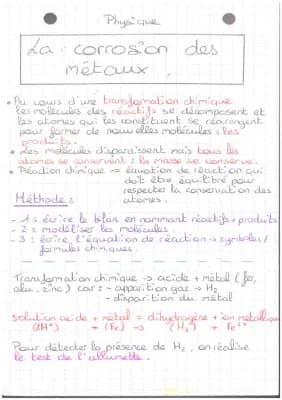 Physique
La corrosion des
métaux.
• Au cours d'une transformation chimique
les molécules des réactifs se décomposent et
les atomes qui les constituent se réarrangent
pour former de nouvelles molécules : les
produits.
• Les molécules disparaissent mais tous les
atomes se conservent : la masse se conserve.
• Réaction chimique → équation de réaction qui
doit être équilibré pour
respecter la conservation des
atomes.
Méthode :
- 1 : écrire le bilan en nommant réactifs + produits
- 2 : modéliser les molécules.
- 3 : écrire l'équation de réaction → symboles /
formules chimiques.
Transformation chimique → acide + métal (fer,
alu, zinc) car : - apparition gaz → H₂
- disparition du métal
solution acide + métal = dihydrogène + ion métallique
(2H⁺) + (Fe) → (H₂) + Fe²⁺
Pour détecter la présence de H₂, on réalise
le test de l'allumette.